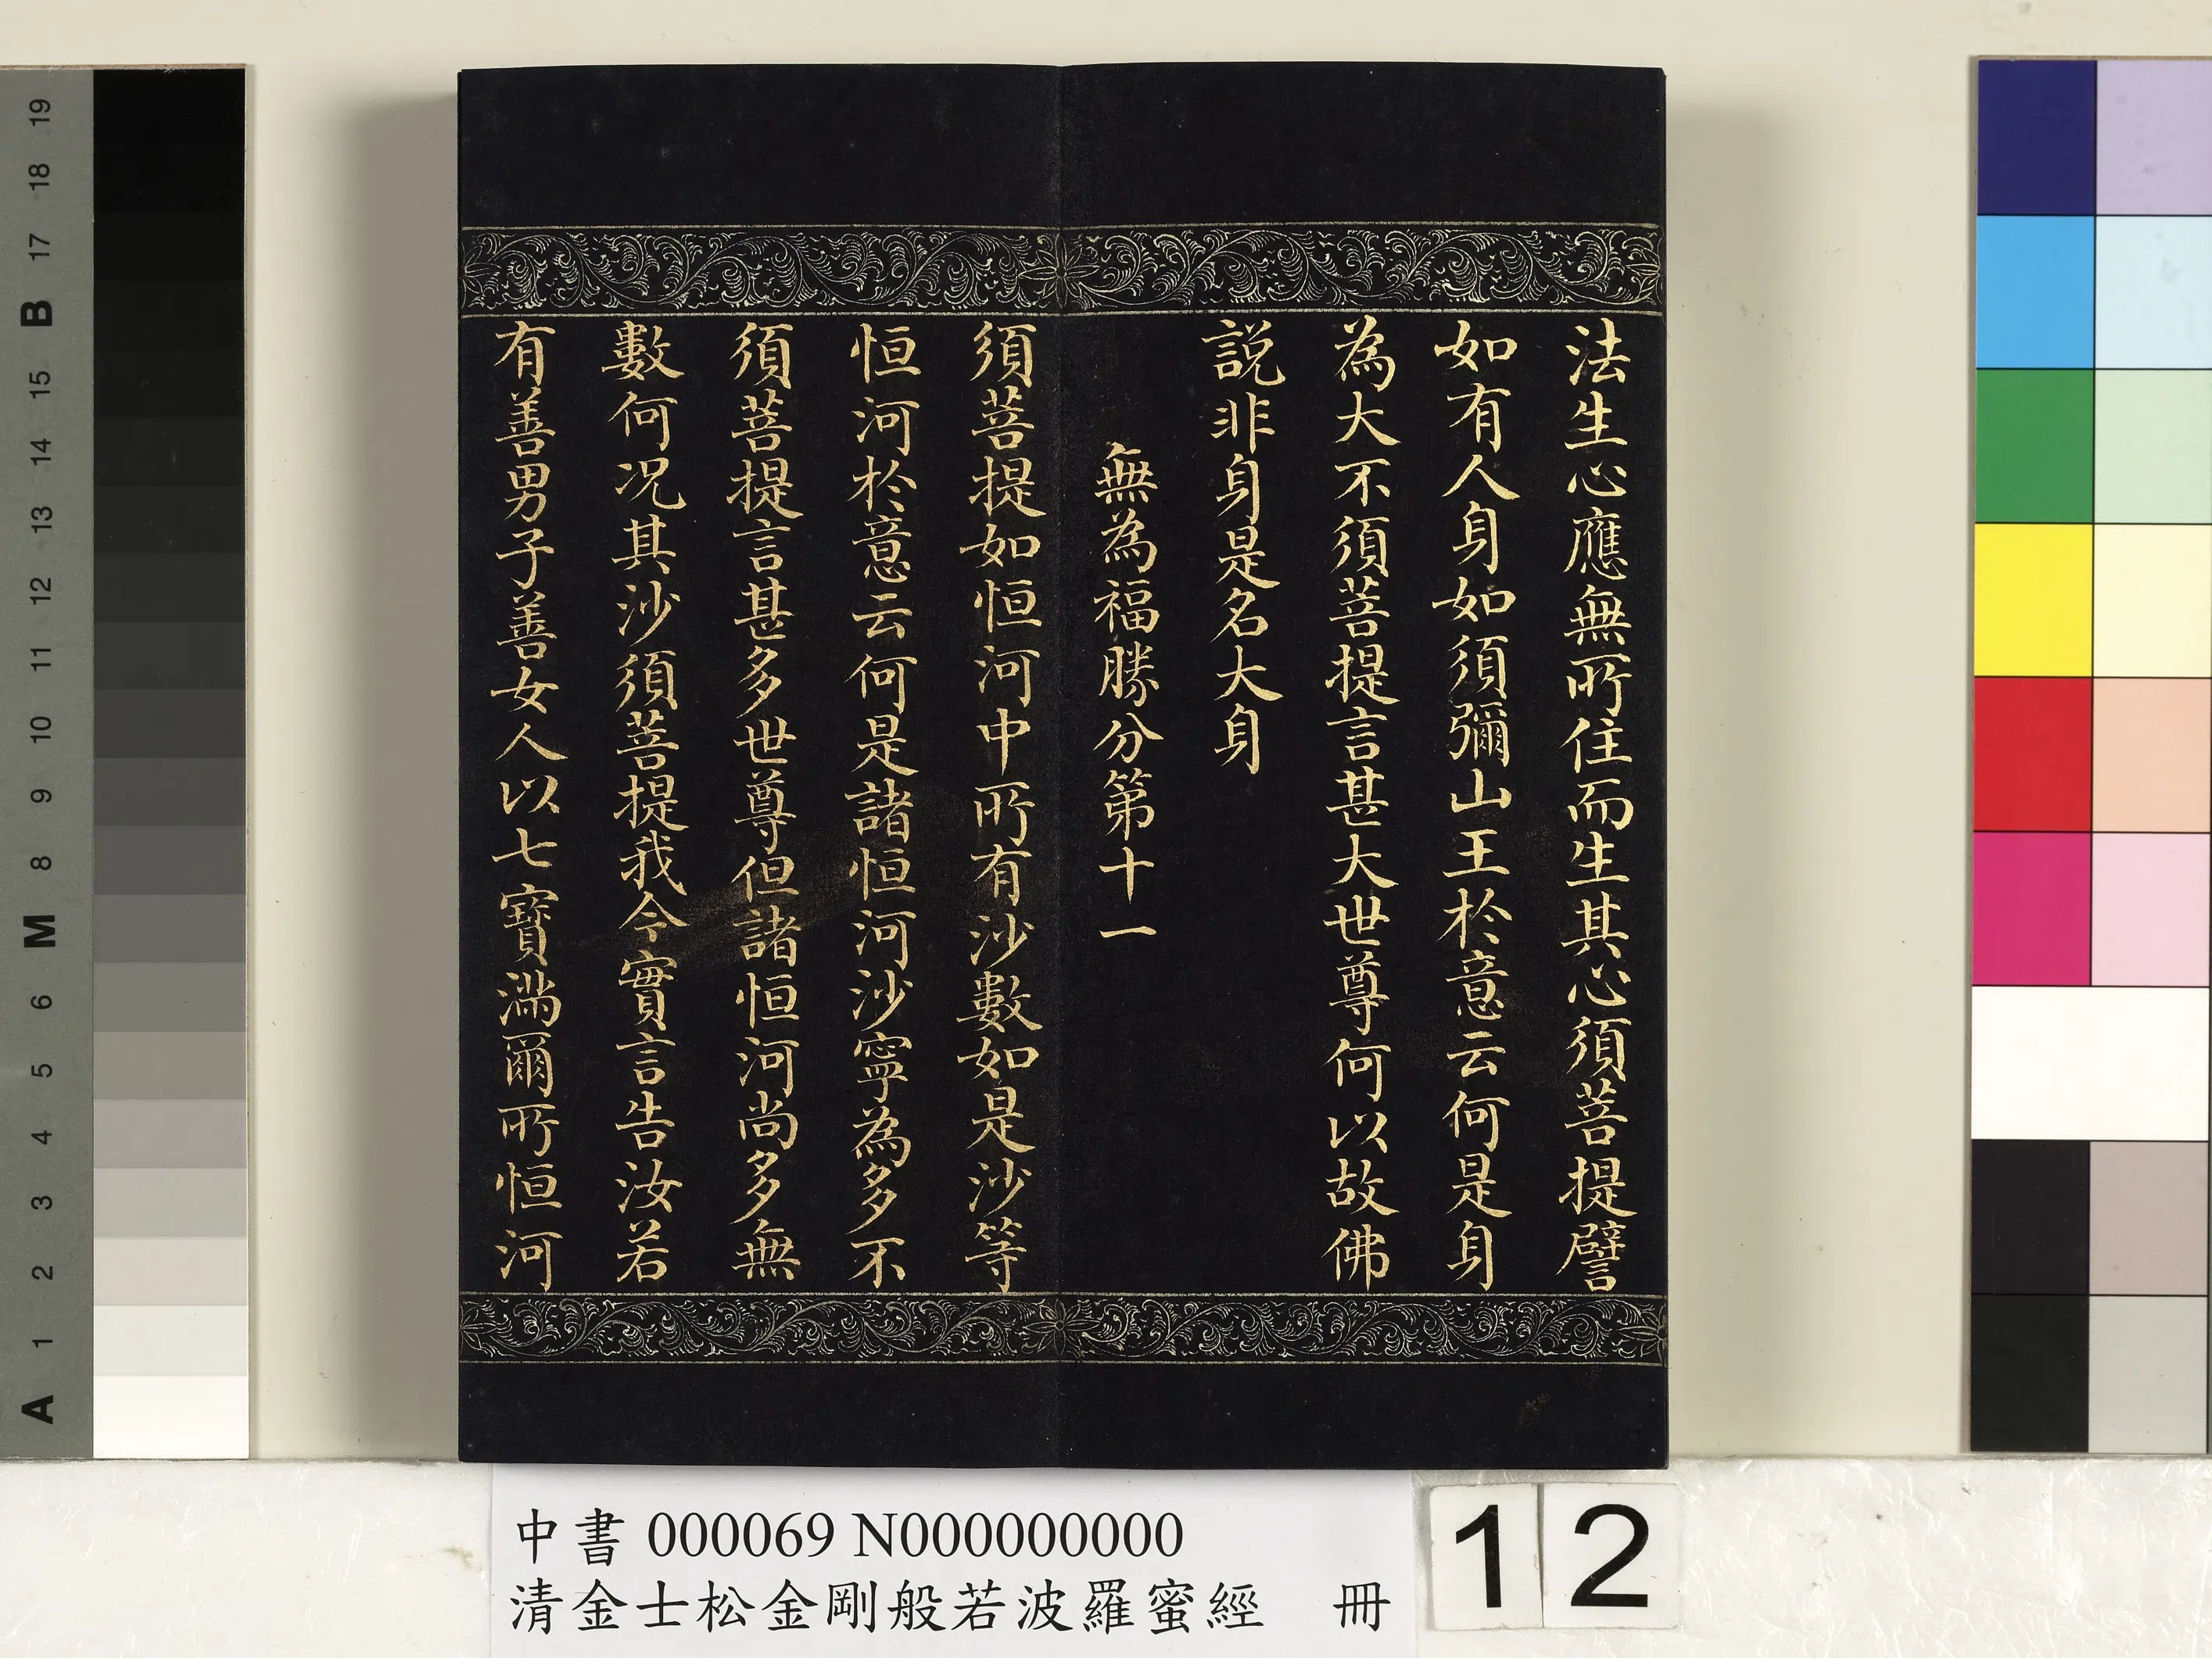 法生心應無所住而生其心須菩提譬
如有人身如須彌山王於意云何是身
為大不須菩提言甚大世尊何以故佛
説非身是名大身
無為福勝分第十一
須菩提如恒河中所有沙數如是沙等
恒河於意云何是諸恒河沙寧為多不
須菩提言甚多世尊但諸恒河尚多無
數何况其沙須菩提我今實言告汝若
有善男子善女人以七寶滿爾所恒河
中書 000069 N000000000
清金士松金剛般若波羅蜜經 冊
12
19
18
17
B
16
15
14
13
12
11
10
9
8
M
6
5
4
3
2
1
A